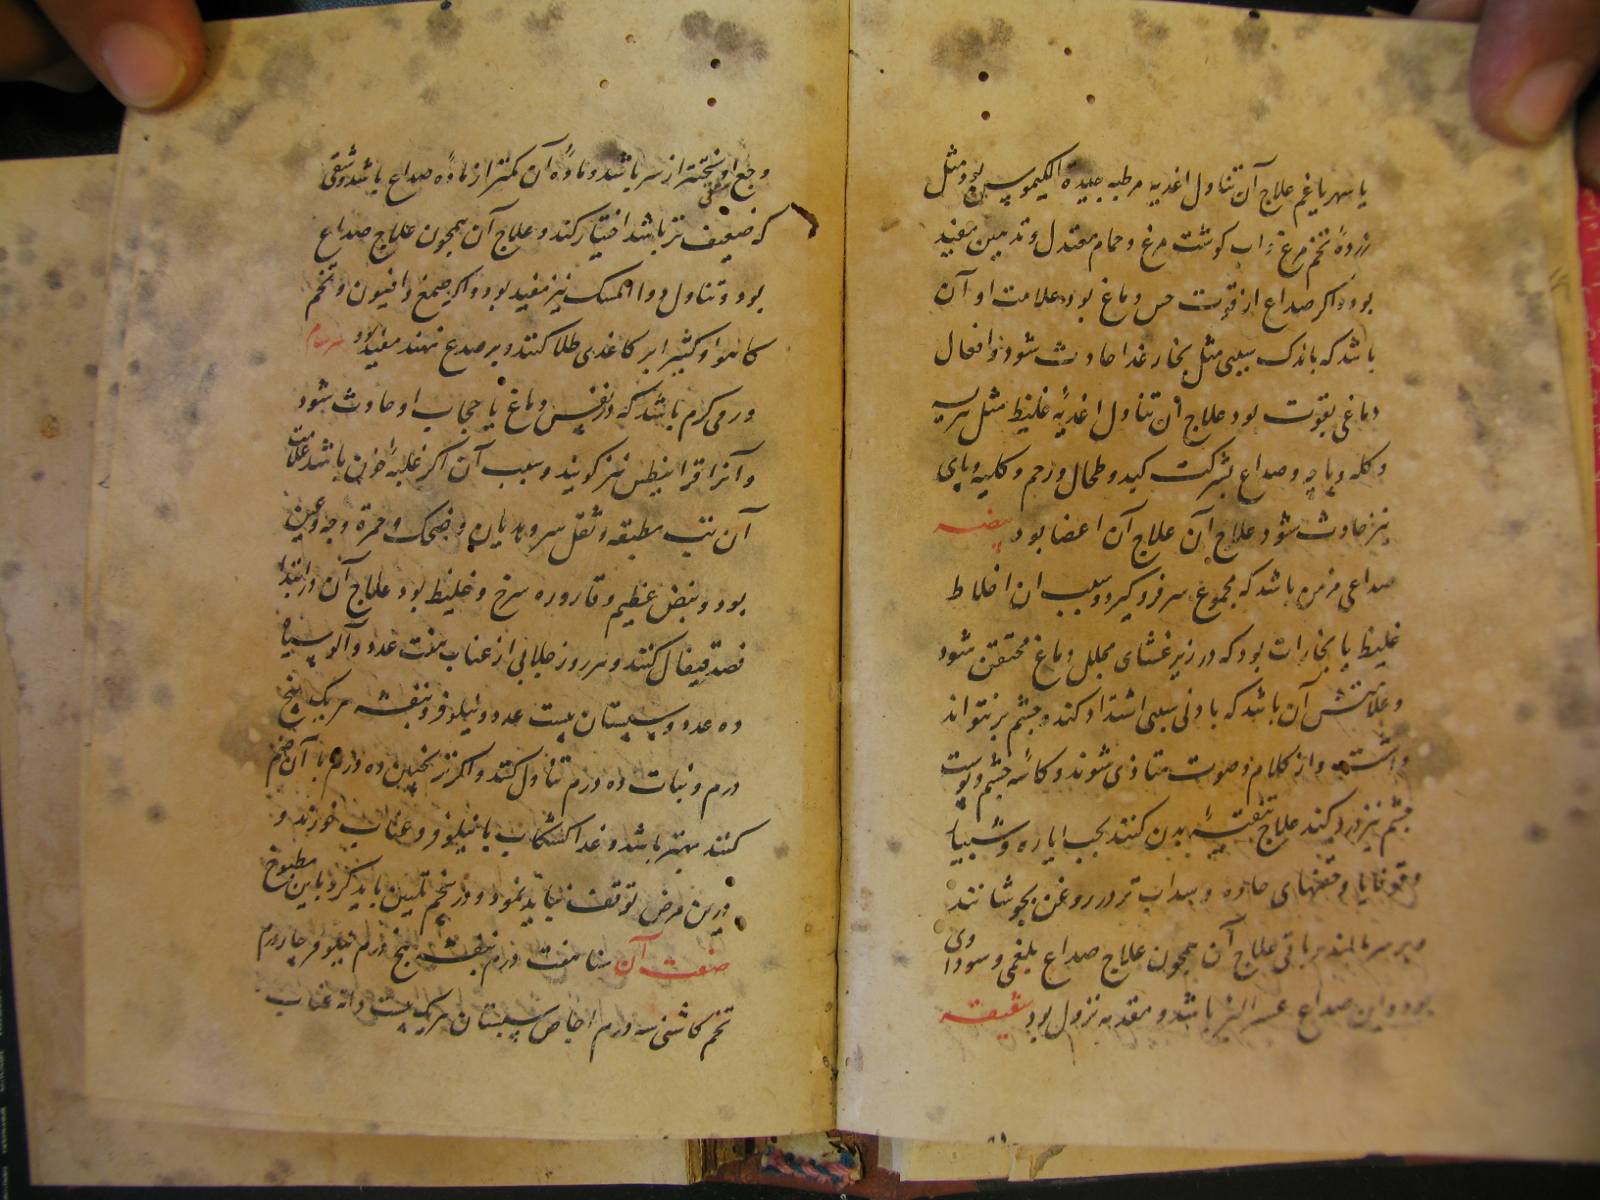 یا سهر یا غم علاج آن تناول اغذیه مرطبه جیدة الکیموس بود مثل
زردهٔ تخم مرغ و آب گوشت مرغ و حمام معتدل و تدهین مفید
بود و اگر صداع از قوت حس دماغ بود علامت او آن
باشد که باندک سببی مثل بخار غذا حادث شود و افعال
دماغی بقوت بود علاج آن تناول اغذیهٔ غلیظ مثل هریسه
و کله و پاچه و صداع بشرکت کبد و طحال و رحم و کلیه و پای
نیز حادث شود علاج آن علاج آن اعضا بود بیضه
صداعی مزمن باشد که مجموع سر فرو گیرد و سبب ان اخلاط
غلیظ یا بخارات بود که در زیر غشای مجلل دماغ محتقن شود
و علامتش آن باشد که بادنی سببی اشتداد کند و چشم بر نتواند
داشت و از کلام و صوت متاذی شوند و کاسه چشم و پوست
چشم نیز درد کند علاج تنقیهٔ بدن کنند بحب ایاره و شبیار
و قوقایا و حقنهای حاده و سداب تر در روغن بجوشانند
و بر سر مالند و باقی علاج آن همچون علاج صداع بلغمی و سوداوی
بود و این صداع عسر البرء باشد و مقدمه نزول بود شقیقه
وجع او سختتر از سر باشد و مادهٔ آن کمتر از مادهٔ صداع باشد و شقی
که ضعیف تر باشد اختیار کند و علاج آن همچون علاج صداع
بود و تناول دواء المسک نیز مفید بود و اگر صمغ و افیون و تخم
کاهو و کثیرا بر کاغذی طلا کنند و بر صدغ نهند مفید بود سرسام
ورمی گرم باشد که در نفس دماغ یا حجاب او حادث شود
و آنرا قرانیطس نیز گویند و سبب آن اگر غلبهٔ خون باشد علامت
آن تب مطبقه و ثقل سر و هذیان و ضحک و حمرة وجه و عین
بود و نبض عظیم و قاروره سرخ و غلیظ بود علاج آن در ابتدا
فصد قیفال کنند و هر روز جلابی از عناب هفت عدد و آلو سیاه
ده عدد و سپستان بیست عدد و نیلوفر و بنفشه هر یک پنج
درم و نبات ده درم تناول کنند و اگر ترنجبین ده درم با آن ضم
کنند بهتر باشد و غذا کشکاب با نیلوفر و عناب خورند و
درین مرض توقف نباید نمود و در پنجم تلیین باید کرد باین مطبوخ
صنعت آن سنا هفت درم بنفشه پنج درم نیلوفر چار درم
تخم کاشنی سه درم اجاص سپستان هر یک بیست دانه عناب